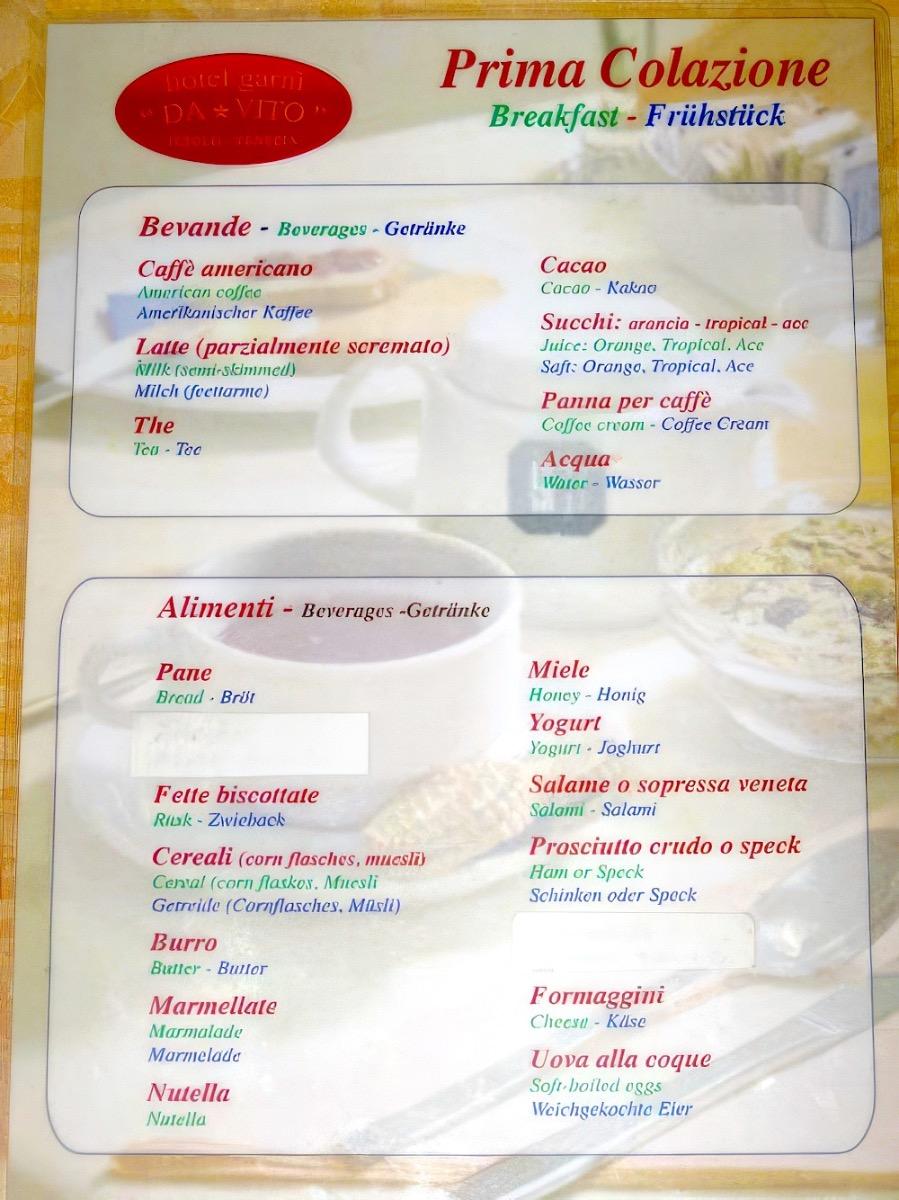 hotel garnì
"DA★VITO"
JESOLO - VENEZIA
Prima Colazione
Breakfast - Frühstück
Bevande - Beverages - Getränke
Caffè americano
American coffee
Amerikanischer Kaffee
Latte (parzialmente scremato)
Milk (semi-skimmed)
Milch (fettarme)
The
Tea - Tee
Cacao
Cacao - Kakao
Succhi: arancia - tropical - ace
Juice: Orange, Tropical, Ace
Saft: Orange, Tropical, Ace
Panna per caffè
Coffee cream - Coffee Cream
Acqua
Water - Wasser
Alimenti - Beverages -Getränke
Pane
Bread - Bröt
Fette biscottate
Rusk - Zwieback
Cereali (corn flasches, muesli)
Cereal (corn flaskes, Muesli
Getreide (Cornflasches, Müsli)
Burro
Butter - Butter
Marmellate
Marmalade
Marmelade
Nutella
Nutella
Miele
Honey - Honig
Yogurt
Yogurt - Joghurt
Salame o sopressa veneta
Salami - Salami
Prosciutto crudo o speck
Ham or Speck
Schinken oder Speck
Formaggini
Cheese - Käse
Uova alla coque
Soft-boiled eggs
Weichgekochte Eier